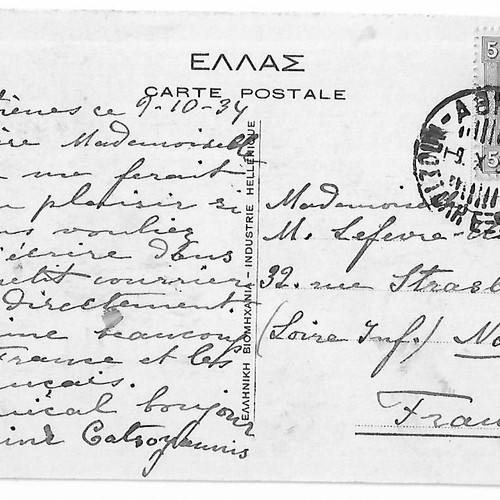 ΕΛΛΑΣ
CARTE POSTALE
ènes ce 9-10-34
ère Mademoiselle
me ferait
plaisir si
us vouliez
écrire dans
petit courrier
directement.
ime beaucoup
France et les
nçais.
mical bonjour
ΕΛΛΗΝΙΚΗ ΒΙΟΜΗΧΑΝΙΑ - INDUSTRIE HELLÉNIQUE
Mademoise
M. Lefevre-
32. rue Strasb
(Loire Inf.) Na
Fran
5